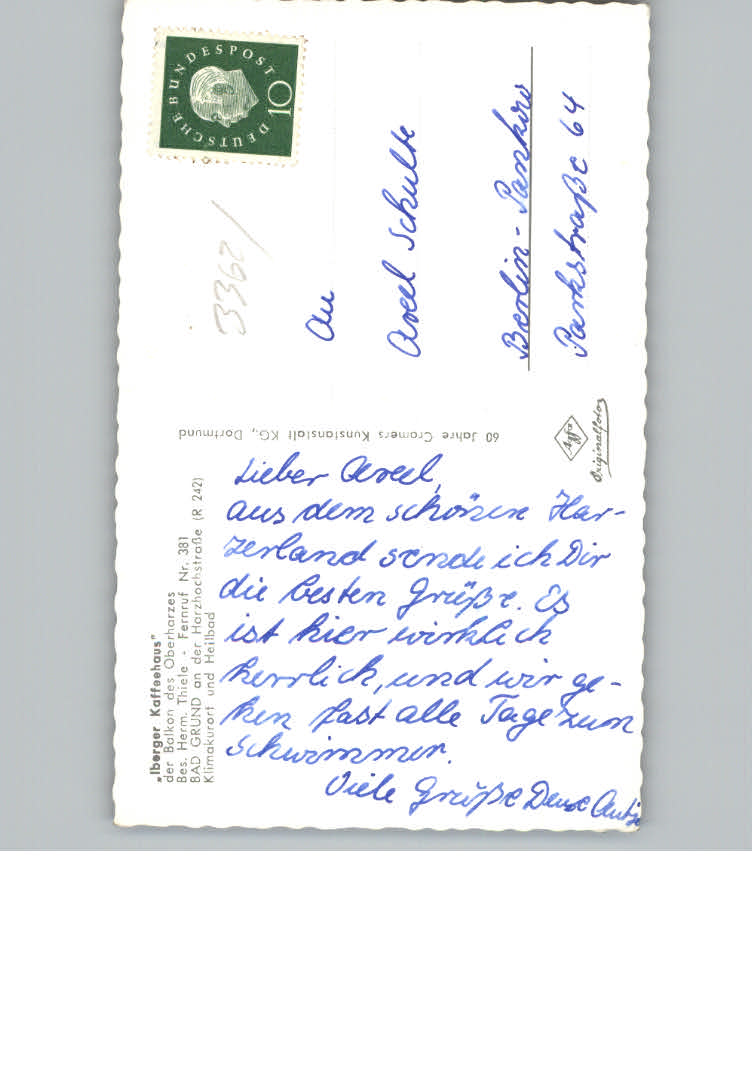 DEUTSCHE BUNDESPOST
10
3362/
An
Axel Schulte
Berlin-Pankow
Parkstraße 64
60 Jahre Cramers Kunstanstalt KG., Dortmund
Agfa
Originalfoto
„Iberger Kaffeehaus"
der Balkon des Oberharzes
Bes. Herm. Thiele - Fernruf Nr. 381
BAD GRUND an der Harzhochstraße (R 242)
Klimakurort und Heilbad
Lieber Axel,
aus dem schönen Har-
zerland sende ich Dir
die besten Grüße. Es
ist hier wirklich
herrlich, und wir ge-
hen fast alle Tage zum
Schwimmen.
Viele Grüße Deine Antje